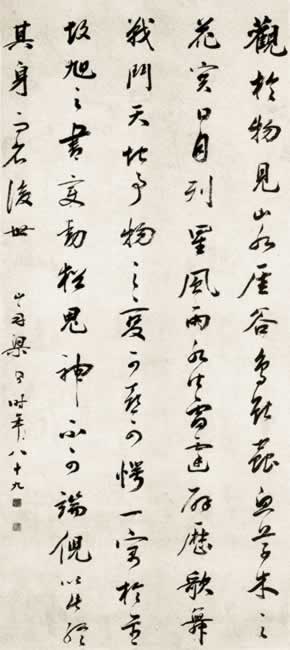 觀於物見山水崖谷鳥獸蟲魚草木之
花實日月列星風雨水火雷霆霹靂歌舞
戰鬥天地事物之變可喜可愕一寓於書
故旭之書變動猶鬼神不可端倪以此終
其身而名後世
山舟梁同書時年八十九